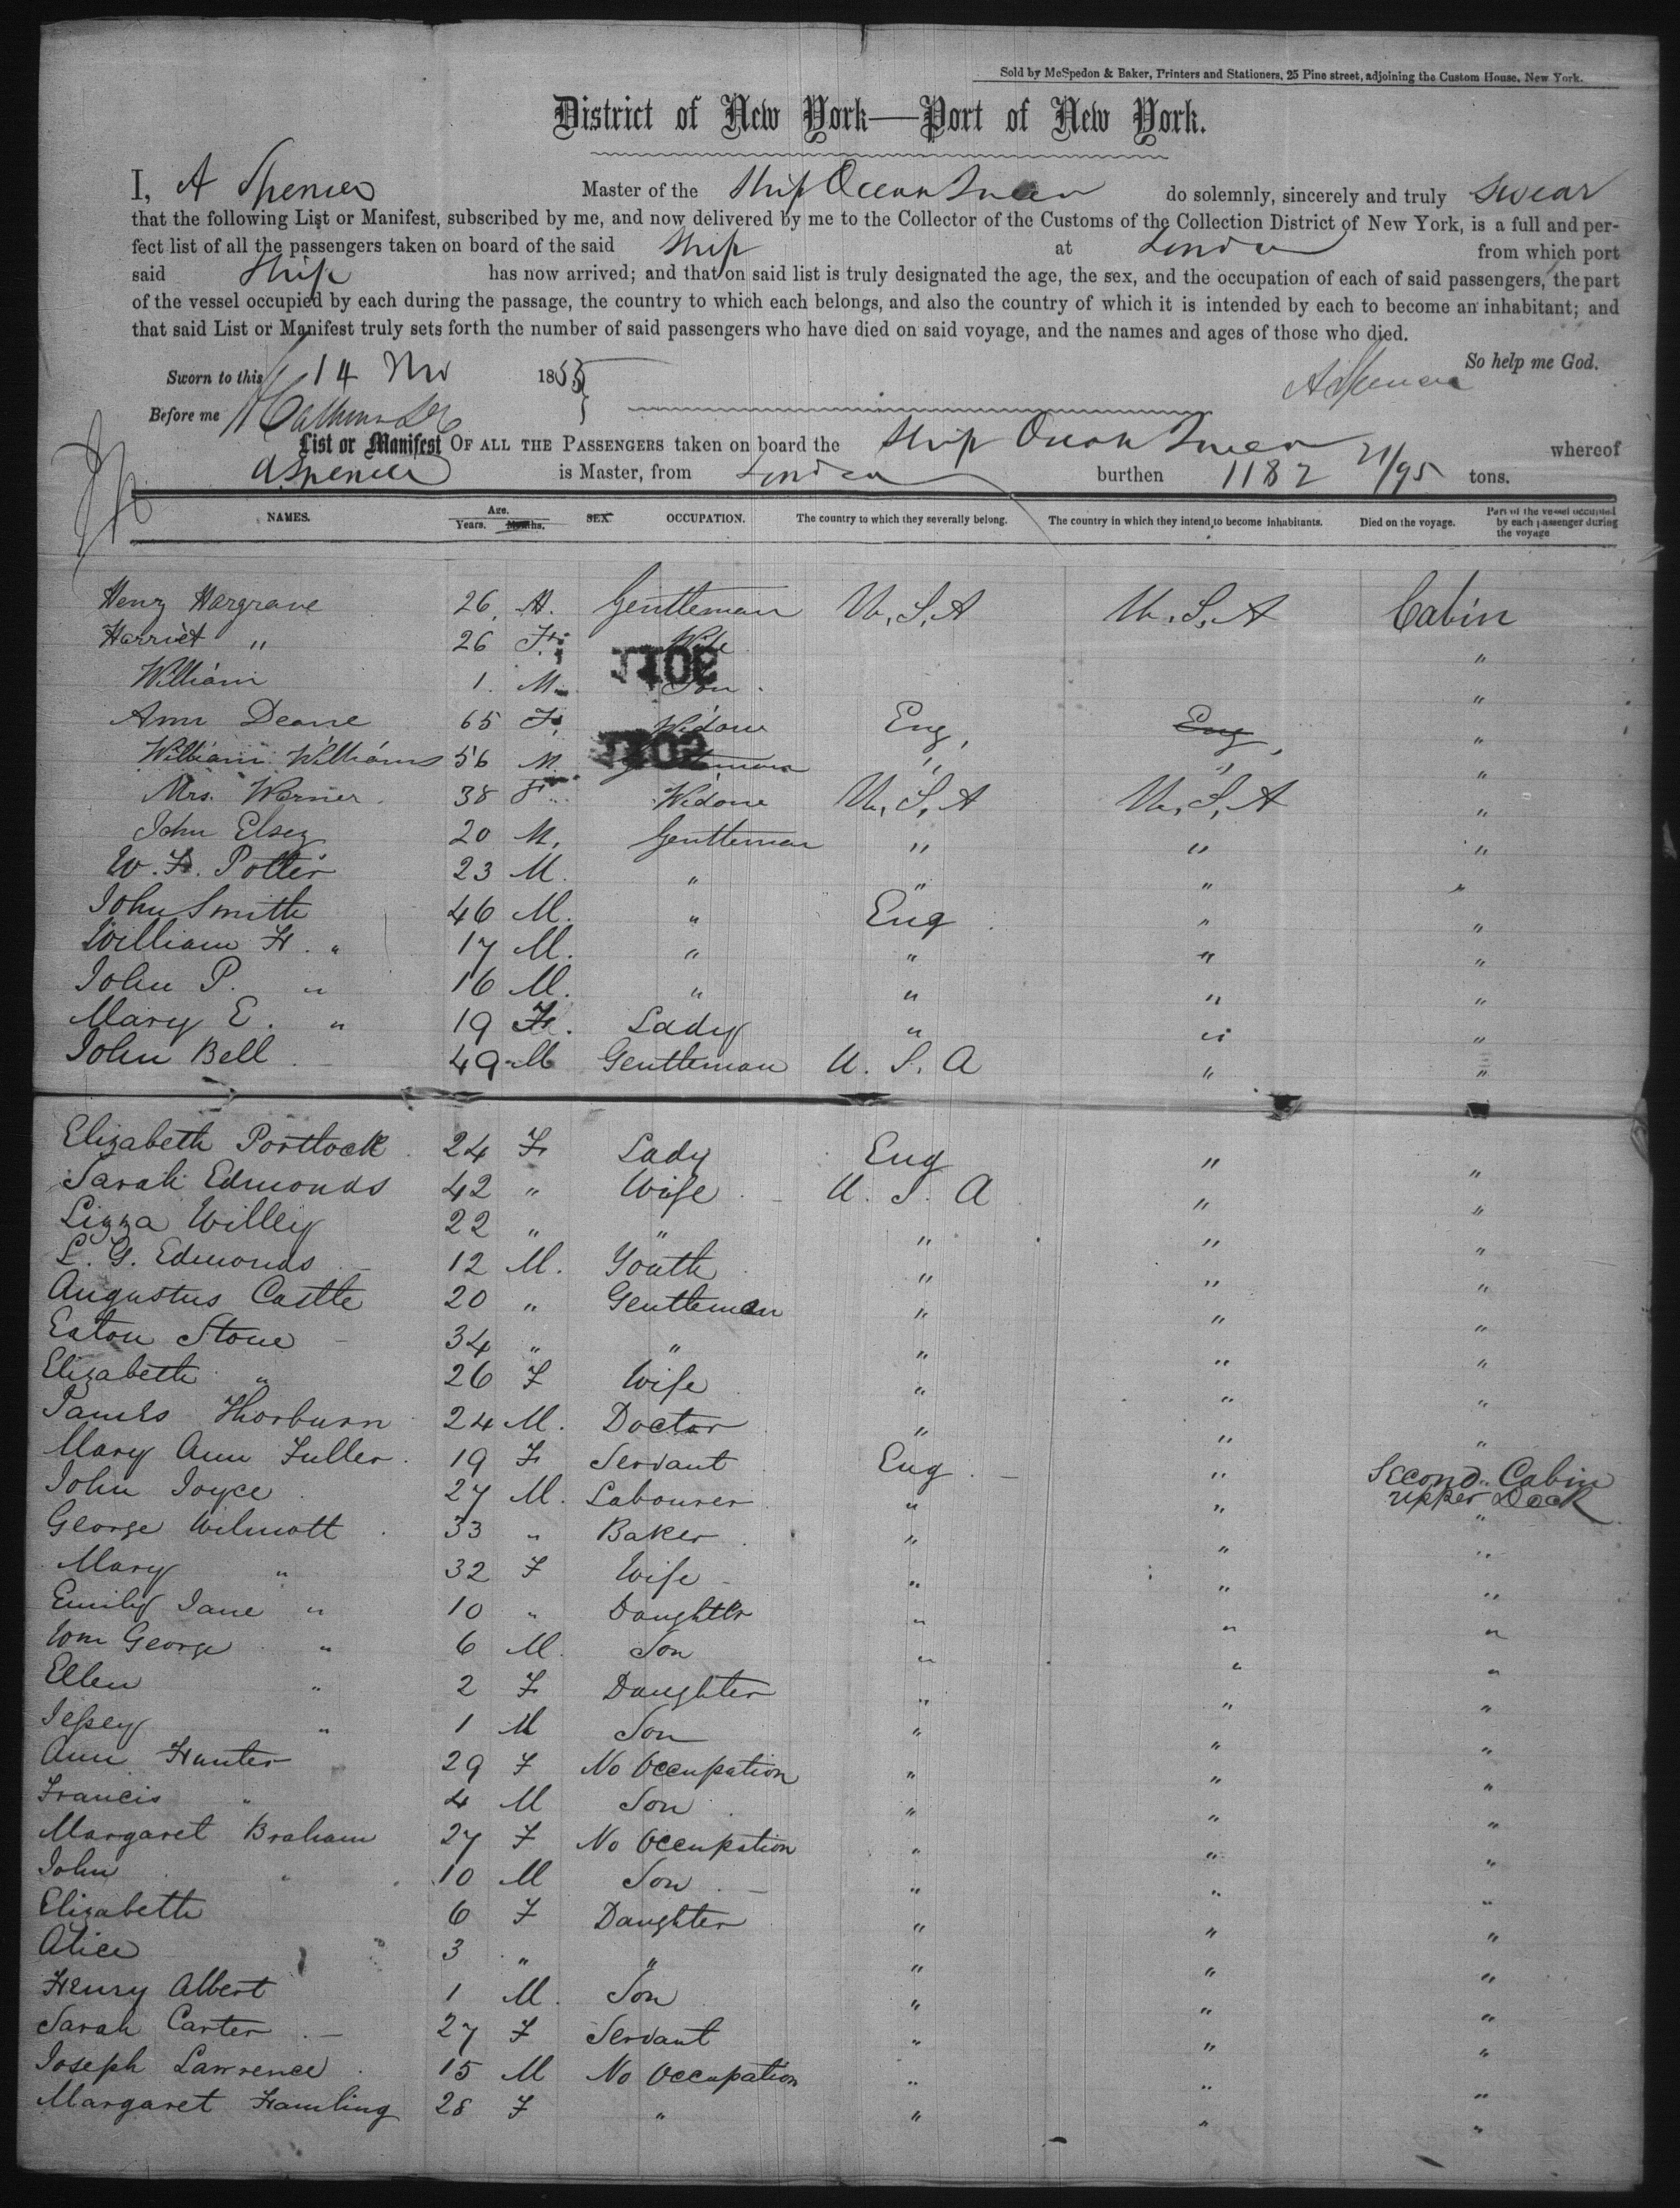 Sold by McSpedon & Baker, Printers and Stationers, 25 Pine street, adjoining the Custom House, New York.
District of New York—Port of New York.
I, A Spencer Master of the Ship Ocean Queen do solemnly, sincerely and truly swear
that the following List or Manifest, subscribed by me, and now delivered by me to the Collector of the Customs of the Collection District of New York, is a full and per-
fect list of all the passengers taken on board of the said Ship at London from which port
said Ship has now arrived; and that on said list is truly designated the age, the sex, and the occupation of each of said passengers, the part
of the vessel occupied by each during the passage, the country to which each belongs, and also the country of which it is intended by each to become an inhabitant; and
that said List or Manifest truly sets forth the number of said passengers who have died on said voyage, and the names and ages of those who died.
So help me God.
Sworn to this 14 Nov 1855 A Spencer
Before me
List or Manifest OF ALL THE PASSENGERS taken on board the Ship Ocean Queen whereof
A Spencer is Master, from London burthen 1182 21/95 tons.
NAMES. Age. Years. Months. SEX OCCUPATION. The country to which they severally belong. The country in which they intend to become inhabitants. Died on the voyage. Part of the vessel occupied by each passenger during the voyage
Henry Hargrave 26. M. Gentleman U.S.A U.S.A Cabin
Harriet " 26 F. Wife "
William 1. M. Son "
Ann Deane 65 F. Widow Eng, Eng, "
William Williams 56 M. Gentleman " " "
Mrs. Warner 38 F. Widow U.S.A U.S.A "
John Elsey 20 M. Gentleman " " "
W. F. Potter 23 M. " " " "
John Smith 46 M. " Eng " "
William H. " 17 M. " " " "
John P. " 16 M. " " " "
Mary E. " 19 F. Lady " " "
John Bell 49 M Gentleman U.S.A " "
Elizabeth Portlock 24 F Lady Eng " "
Sarah Edmonds 42 " Wife U.S.A " "
Lizza Willey 22 " " " " "
L. G. Edmonds 12 M. Youth " " "
Augustus Castle 20 " Gentleman " " "
Eaton Stone 34 " " " " "
Elizabeth " 26 F Wife " " "
James Thorburn 24 M. Doctor " " "
Mary Ann Fuller 19 F Servant Eng " Second Cabin
John Joyce 27 M. Labourer " " upper Deck
George Wilmott 33 " Baker " " "
Mary " 32 F Wife " " "
Emily Jane " 10 " Daughter " " "
Wm George " 6 M. Son " " "
Ellen " 2 F Daughter " " "
Jessey " 1 M Son " " "
Ann Hunter 29 F No Occupation " " "
Francis " 4 M Son " " "
Margaret Braham 27 F No Occupation " " "
John " 10 M Son " " "
Elizabeth 6 F Daughter " " "
Alice 3 " " " " "
Henry Albert 1 M. Son " " "
Sarah Carter 27 F Servant " " "
Joseph Lawrence 15 M No Occupation " " "
Margaret Hamling 28 F " " " "